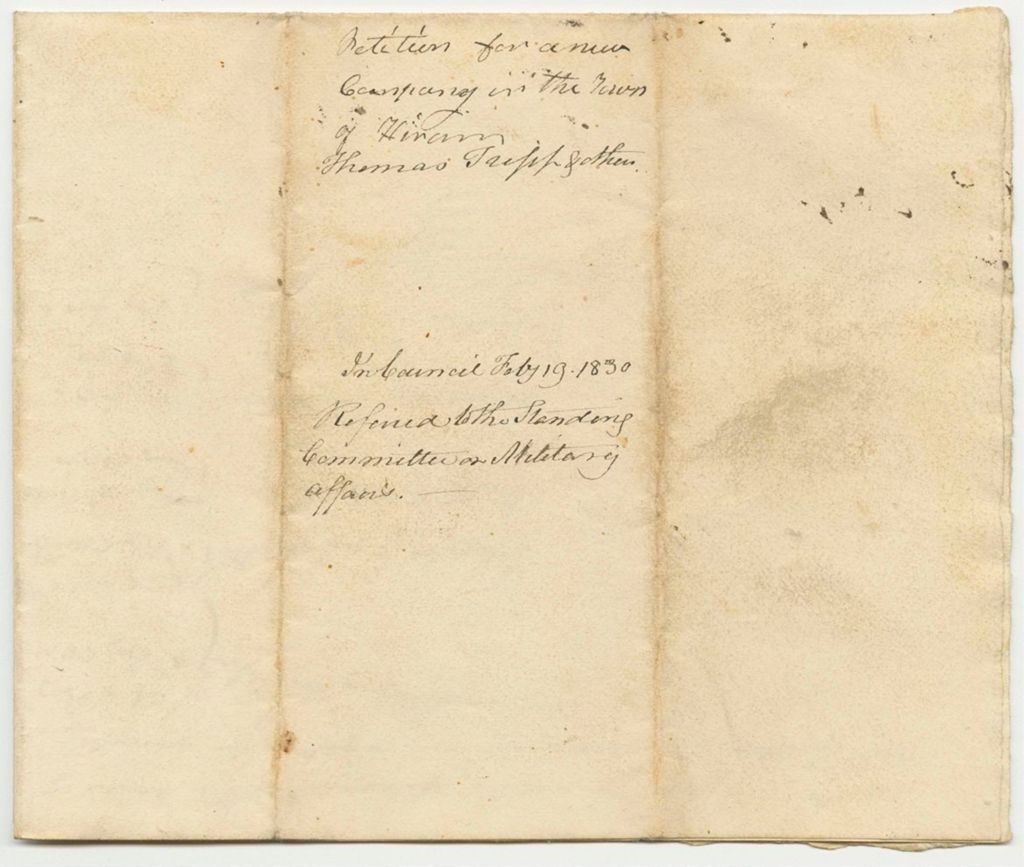 Petition for a new
Company in the Town
of Hiram
Thomas Tripp & others.
In Council Feby 19. 1830
Referred to the Standing
Committee on Military
affairs.